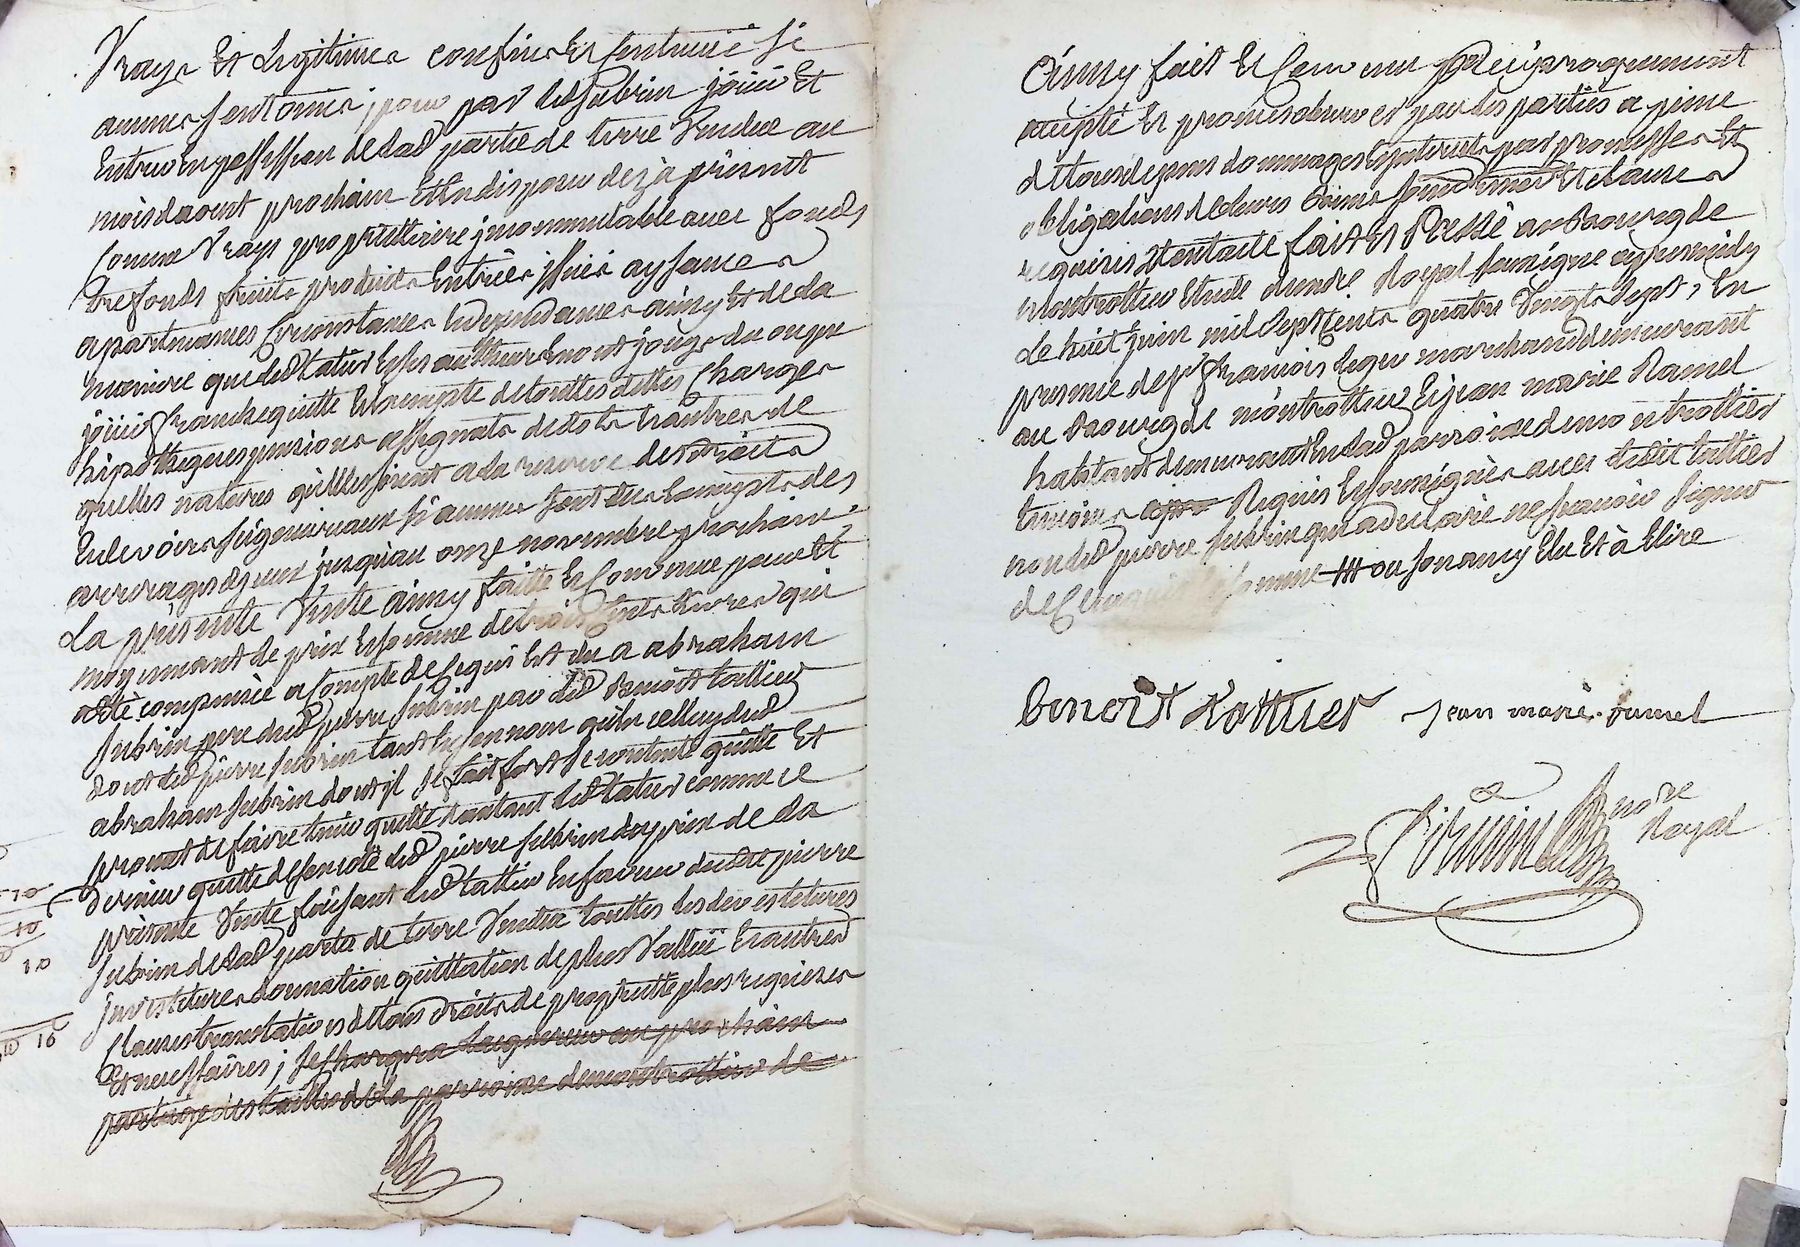 Vrays Et Legitimes confins Et sentume si
aucuns sentomis, pour par led Subrin jouir Et
Entrer En possession de lad partie de terre Vendue au
mois daout prochain Et En disposer dezà présent
Comme Vrays proprietterire jncommutable avec fonds
trefonds fruits produits Entrées jssues aysances
apartenances Circonstances Independances ainsy Et de la
maniere que led tatier Et ses autheurs En ont jouy ou du
jouir franche quitte Et Exempte de touttes dettes Charges
hipotheques pensions assignats de dots Et autres de
quelles natures quelles soient a la reserve des droits
Et devoirs seigneuriaux si aucuns sont dus Exempts des
arrerages dyceux jusquau onze novembre prochain,
La présente Vente ainsy faitte Et Convenue pour Et
moyennant le prix Et somme de trois Cents livres qui
a été compensée a Compte de Ce qui Est du a abraham
Subrin pere dud pierre Subrin par led Benoit tattier
dont led pierre Subrin tant En son nom quen celluy dud
abraham Subrin dont jl se fait fort se contente quitte Et
promet de faire tenir quitte Et autant led tatier comme ce
dernier quitte de son coté led pierre Subrin du prix de la
présente Vente faisant led tattier En faveur dudit pierre
Subrin de lad partie de terre Vendue touttes les devestetures
jnvestitures donnation quittation de plus Vallue Et autres
Clauses translatives de tous droits de proprietté plus requises
Et necessaires; se chargera Lacquereur au prochain
partage des tailles de la parroisse de montrottier de
10
10
10
10 16
Ainsy fait Et Convenu reciproquement
accepté Et promis observer par les parties a peine
de tous depens dommages Et interets par promesses Et
obligations de leurs biens soumissions Et clauses
requises Et en tacte fait Et Passé au Bourg de
montrottier Etude du nore Royal soussigné apres midy
le huit juin mil sept Cents quatre Vingts sept, En
presence de sr francois Leger marchand demeurant
au Bourg de montrottier Et jean marie Ramel
habitant demeurant En lad parroisse de montrottier
temoins Requis Et soussignés avec ledit tattier
non led pierre Subrin qui a declaré ne scavoir signer
de Ce requis Et somme ou son amy Elu Et à Elire
Benoit tattier Jean marie ramel
nore
Royal